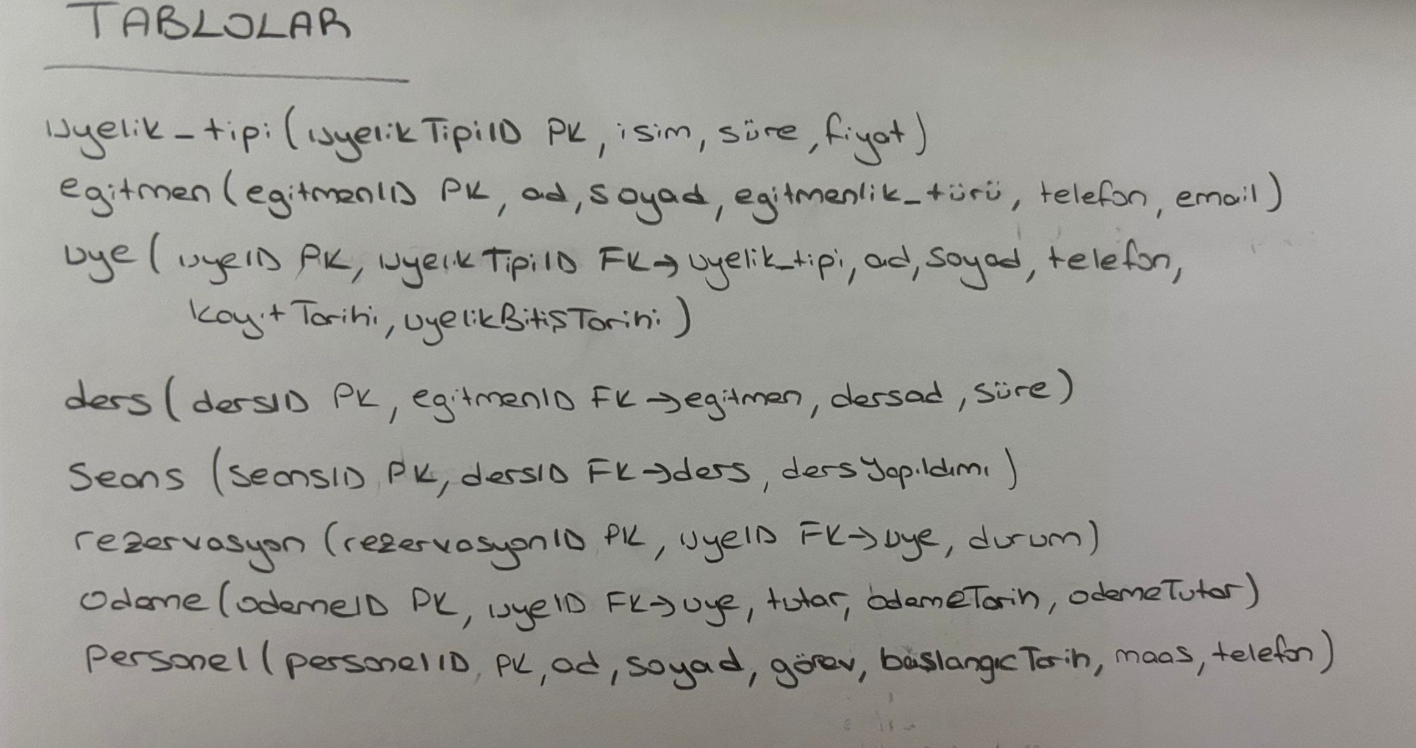 TABLOLAR
uyelik_tipi(uyelikTipiID PK, isim, süre, fiyat)
egitmen(egitmenID PK, ad, soyad, egitmenlik_türü, telefon, email)
uye(uyeID PK, uyelikTipiID FK→uyelik_tipi, ad, soyad, telefon,
kayitTarihi, uyelikBitişTarihi)
ders(dersID PK, egitmenID FK→egitmen, dersad, süre)
Seans (seansID PK, dersID FK→ders, dersYapıldımı)
rezervasyon(rezervasyonID PK, uyeID FK→uye, durum)
Odeme(odemeID PK, uyeID FK→uye, tutar, ödemeTarih, odemeTutar)
Personel(personelID, PK, ad, soyad, görev, başlangıcTarih, maas, telefon)